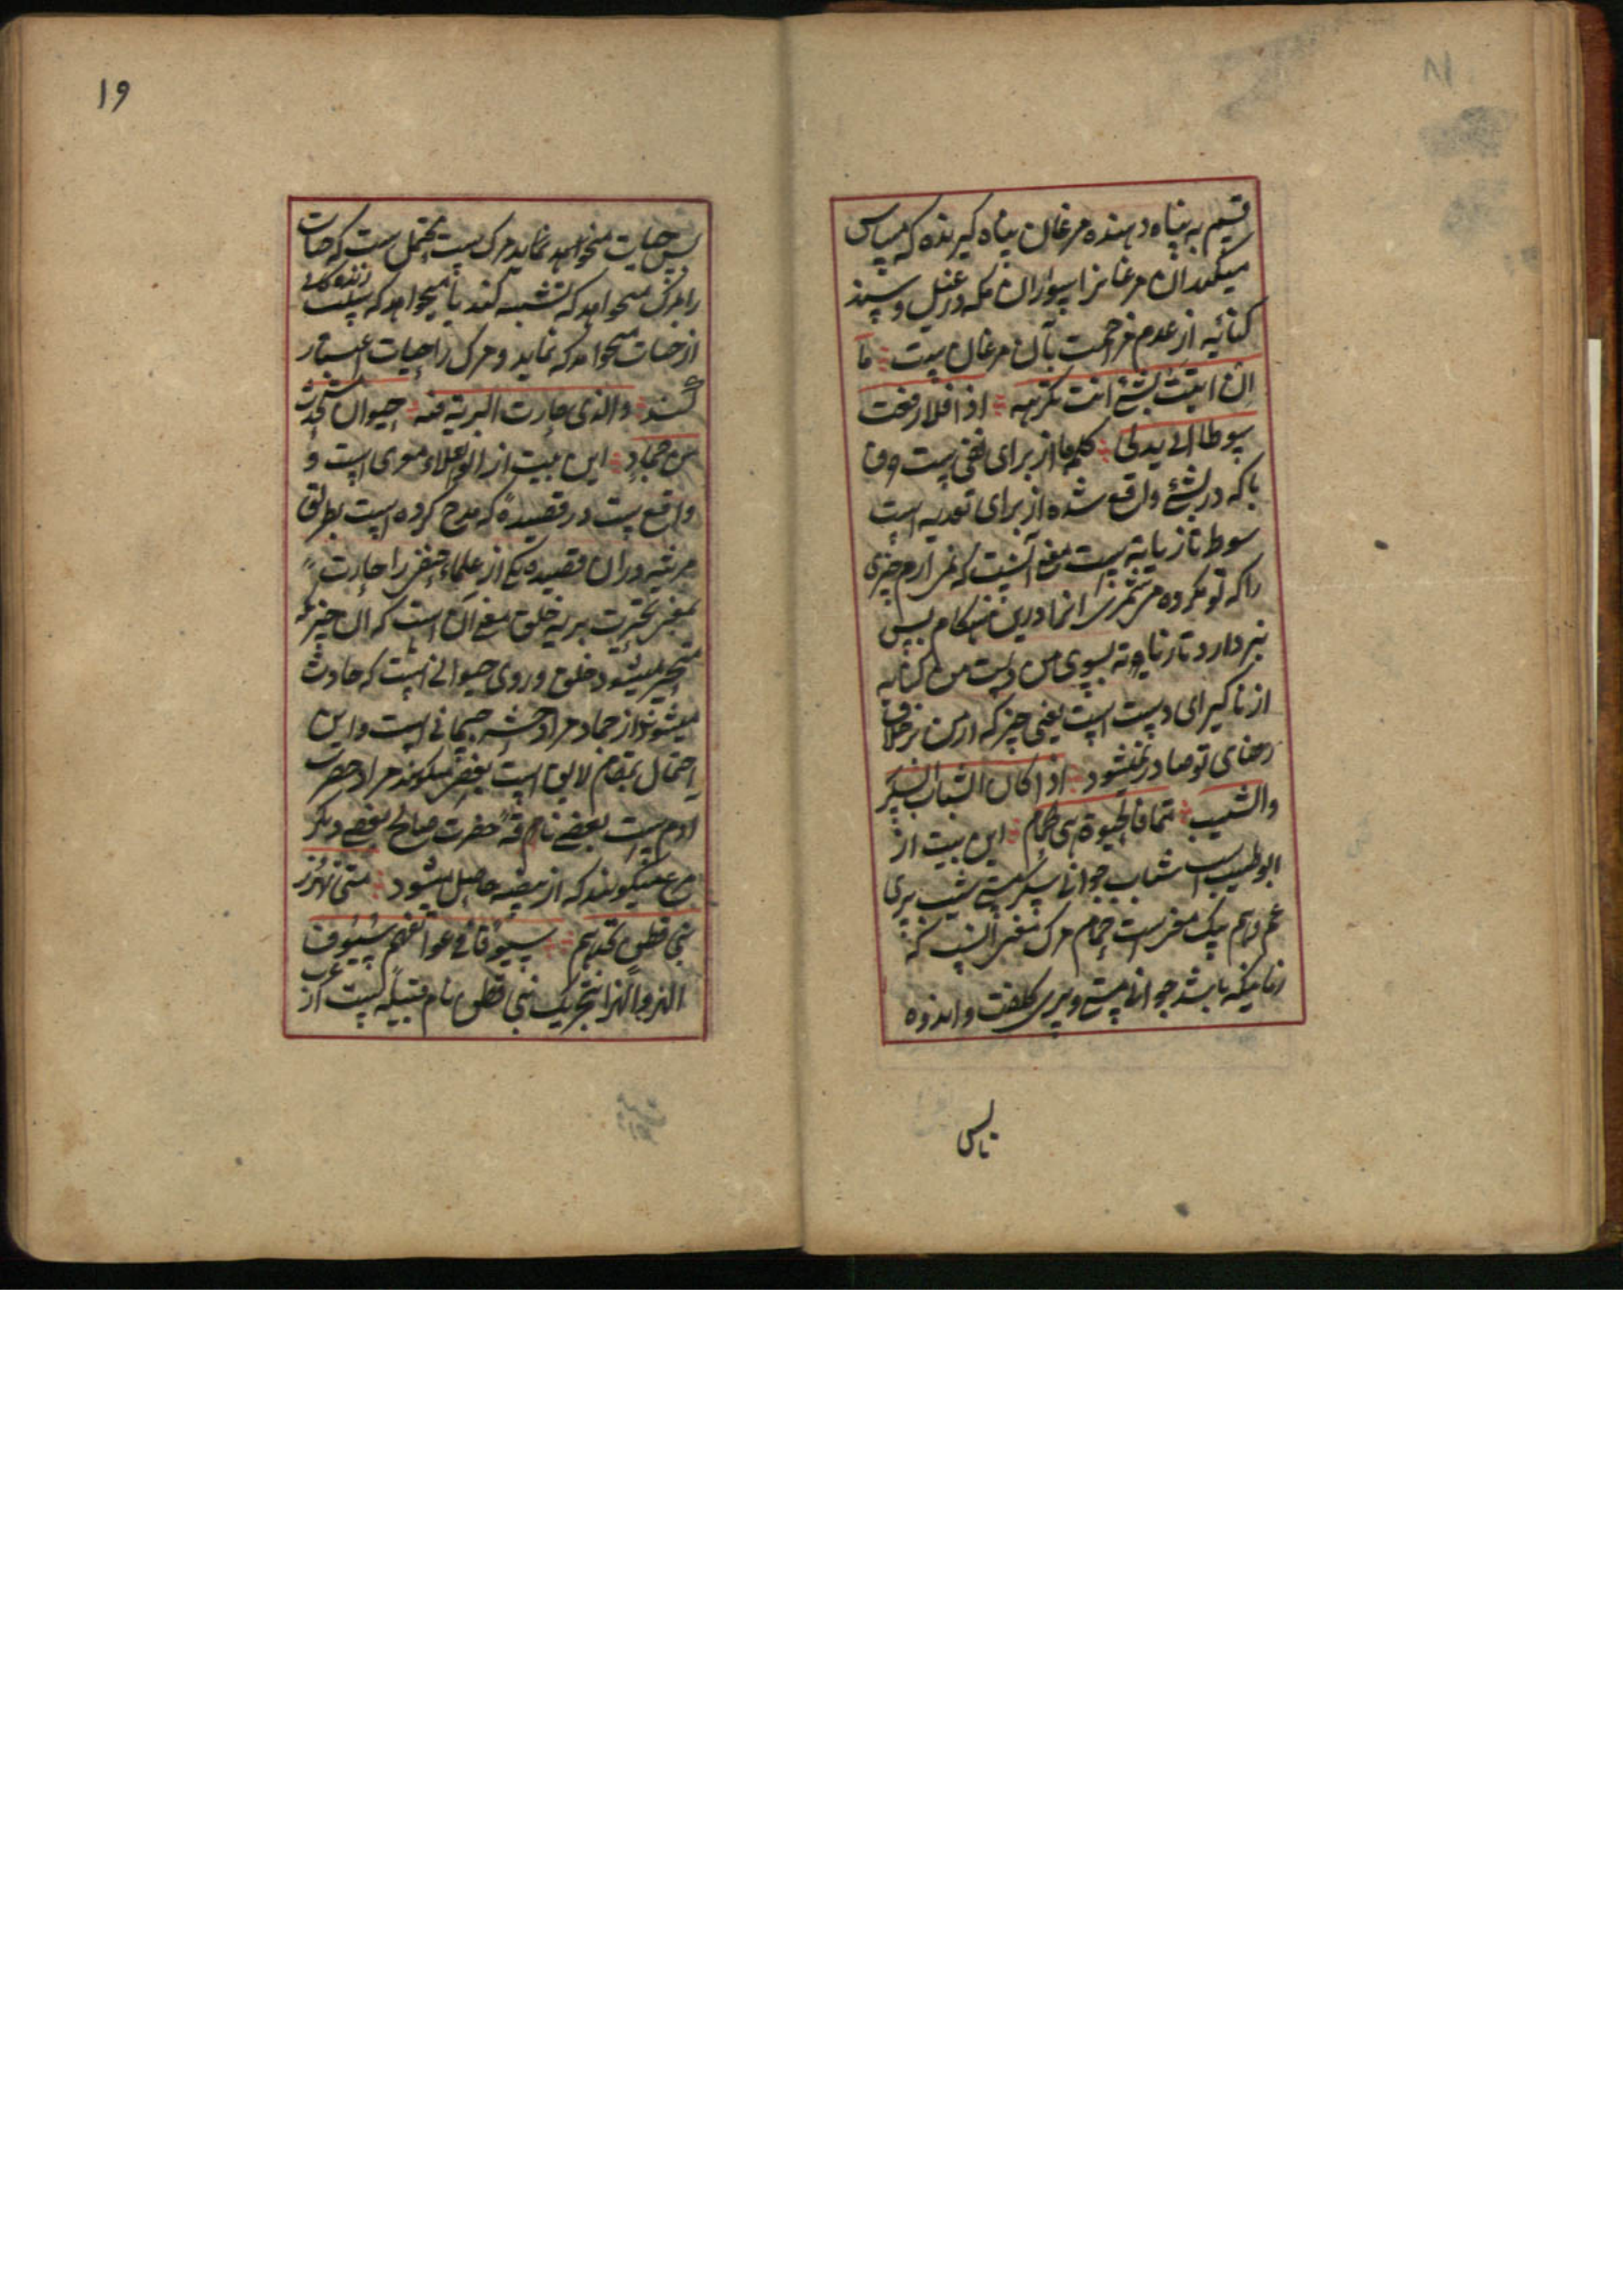 قسم به پناه دهنده مرغان پناه گیرنده که مپاس
میکنند ان مرغانرا سواران مکه در غیل و سند
کنایه از عدم مزاحمت بآن مرغان بیت ما
ان اتیت بشئ انت تکرهه اذا فلا رفعت
سوطا الی یدی کلمه ما از برای نفی ست و ان
با که در بشئ واقع شده از برای تعدیه است
سوط تازیانه ست معنی آنست که نمی ارم چیزی
را که تو مکروه می شمری انرا درین هنکام پس
بر دارد تازیانه بسوی من دست من کنایه
از ناکیرای دست است یعنی چیز که از من بر خلاف
رضای تو صادر نمیشود اذا کان الشباب السکر
والشیب هما فالحیوة هی الحمام این بیت از
ابو طیب است شباب جوانی سکر مستی شیب پیری
غم و هم یک معنی است حمام مرک معنی انست که
زمانیکه باشد جوانی مستی و پیری کلفت و اندوه
پس
۱۹
پس حیات میخواهد نماید مرک ست محتمل ست که حیات
را بمرک میخواهد که تشبیه کند یا میخواهد که سلب زندکانی
از حیات میخواهد که نماید و مرک را حیات اعتبار
کند والذی حارت البریة فیه حیوان مستحدث
من جماد این بیت از ابو العلاء معری است و
واقع ست در قصیده که مدح کرده است بطریق
مرثیه در ان قصیده یکی از علماء حنفی را حارت
بمعنی تحیرت بریه خلق معنی آن است که ان چیز که
متحیر میشود خلق در وی حیوانی است که حادث
میشود از جماد مراد حشر جسمانی است و این
احتمال بمقام لایق است بعضی میکویند مراد حضرت
ادم است بعضی ناقه حضرت صالح بعضی دیکر
مرغ میکویند که از بیضه حاصل میشود متی تهزز
بنی قطن تجدهم سیوفا فی عواتقهم سیوف
الهز والهزا تحریک بنی قطن نام قبیله ایست از عرب